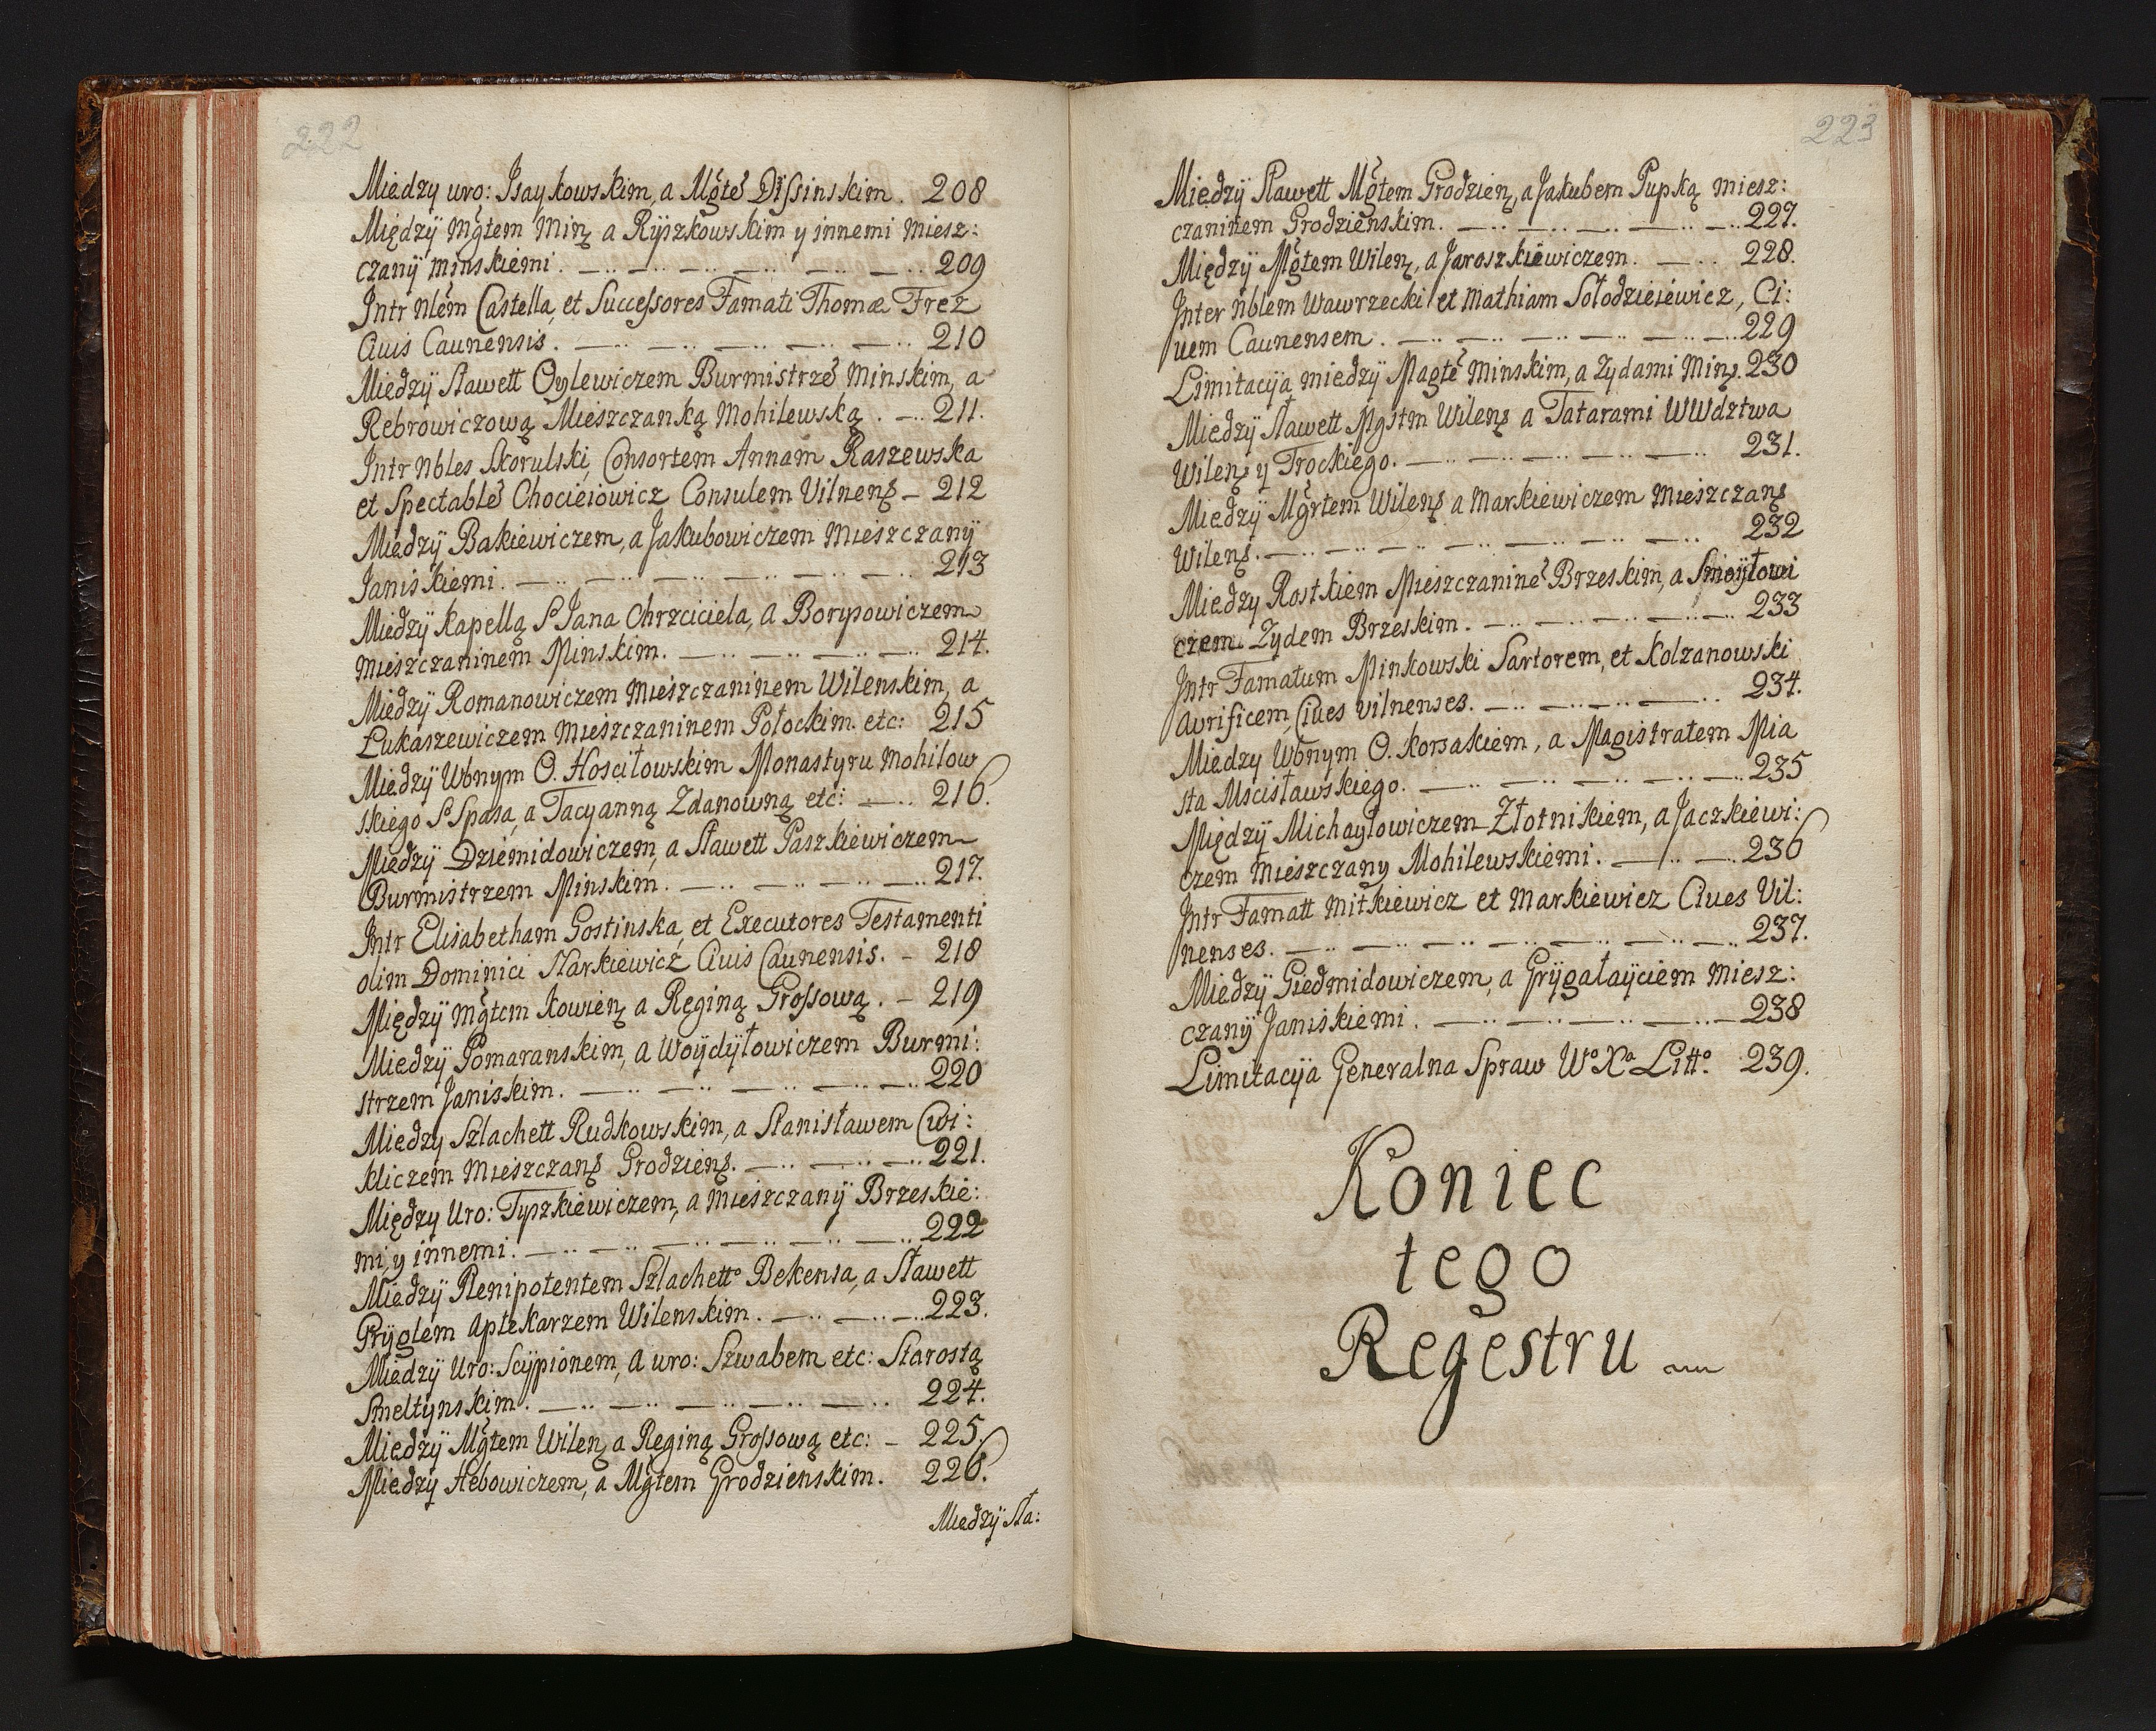 222
Miedzy uro: Isaykowskim, a Mgte Dissinskim. 208
Między Mgtem Min, a Ryszkowskim y innemi Miesz:
czany Minskiemi. 209
Intr Nlem Castella, et Successores Famati Thomæ Frez
Ciuis Caunensis. 210
Miedzy Sławett Oylewiczem Burmistrze Minskim, a
Rebrowiczową Mieszczanką Mohilewską. 211.
Intr Nbles Skorulski, Consortem Annam Raszewska
et Spectable Chocieiowicz Consulem Vilnens 212
Miedzy Bakiewiczem, a Jakubowiczem Mieszczany
Janiskiemi. 213
Miedzy Kapellą S Jana Chrzciciela, a Borypowiczem
Mieszczaninem Minskim. 214.
Miedzy Romanowiczem Mieszczaninem Wilenskim, a
Łukaszewiczem Mieszczaninem Połockim. etc: 215
Miedzy Wbnym O. Hosciłowskim Monastyru Mohilow
skiego S Spasa, a Tacyanną Zdanowną etc: 216.
Miedzy Dziemidowiczem, a Sławett Paszkiewiczem
Burmistrzem Minskim. 217.
Intr Elisabetham Gostinska, et Executores Testamenti
olim Dominici Markiewicz Ciuis Caunensis. 218
Między Mgtem Kowien, a Reginą Grossową. 219
Miedzy Pomaranskim, a Woydyłowiczem Burmi:
strzem Janiskim. 220
Miedzy Szlachett Rudkowskim, a Stanisławem Cwi:
kliczem Mieszczans Grodziens. 221.
Między Uro: Tyszkiewiczem, a Mieszczany Brzeskie:
mi, y innemi. 222
Miedzy Plenipotentem Szlachetto Bekensa, a Sławett
Gryglem Aptekarzem Wilenskim. 223.
Miedzy Uro: Scypionem, a uro: Szwabem etc: Starostą
Smeltynskim. 224.
Miedzy Mgtem Wilen, a Reginą Grossową etc: 225.
Miedzy Hebowiczem, a Mgtem Grodzienskim. 226.
Miedzy Sła:
223
Między Sławett Mgtem Grodzien, a Jakubem Pupką Miesz:
czaninem Grodzienskim. 227.
Między Mgtem Wilen, a Jaroszkiewiczem. 228.
Inter Nblem Wawrzecki et Mathiam Sołodzieiewicz, Ci:
uem Caunensem. 229
Limitacyja miedzy Magte Minskim, a Zydami Mins. 230
Miedzy Sławett Mgstm Wilens a Tatarami WWdztwa
Wilens y Trockiego. 231.
Miedzy Mgrtem Wilens a Markiewiczem Mieszczans
Wilens. 232
Miedzy Rostkiem Mieszczanine Brzeskim, a Smoyłowi
czem Zydem Brzeskim. 233
Intr Famatum Minkowski Sartorem, et Kolzanowski
Aurificem, Ciues Vilnenses. 234.
Miedzy Wbnym O. Korsakiem, a Magistratem Mia
sta Mscisławskiego. 235
Między Michayłowiczem Złotnikiem, a Jaczkiewi:
czem Mieszczany Mohilewskiemi. 236
Intr Famatt Mitkiewicz et Markiewicz Ciues Vil:
nenses. 237.
Miedzy Giedmidowiczem, a Grygałayciem Miesz:
czany Janiskiemi. 238
Limitacyja Generalna Spraw Wo Xa Litto. 239.
Koniec
tego
Regestru